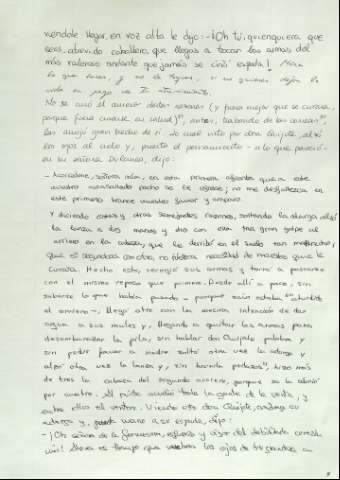 viéndole llegar, en voz alta le dijo: -¡Oh tú, quienquiera que
seas, atrevido caballero, que llegas a tocar las armas del
más valeroso andante que jamás se ciñó espada! Mira
lo que haces, y no las toques, si no quieres dejar la
vida en pago de tu atrevimiento.
No se curó el arriero destas razones (y fuera mejor que se curara,
porque fuera curarse en salud), antes, trabando de las correas,
las arrojó gran trecho de sí. Lo cual visto por don Quijote, alzó
los ojos al cielo y, puesto el pensamiento -a lo que pareció-
en su señora Dulcinea, dijo:
- Acorredme, señora mía, en esta primera afrenta que a este
vuestro avasallado pecho se le ofrece; no me desfallezca en
este primero trance vuestro favor y amparo.
Y diciendo estas y otras semejantes razones, soltando la adarga, alzó
la lanza a dos manos y dio con ella tan gran golpe al
arriero en la cabeza, que le derribó en el suelo tan maltrecho,
que si segundara con otro, no tuviera necesidad de maestro que le
curara. Hecho esto, recogió sus armas y tornó a pasearse
con el mismo reposo que primero. Desde allí a poco, sin
saberse lo que había pasado - porque aún estaba aturdido
el arriero -, llegó otro con la mesma intención de dar
agua a sus mulos y, llegando a quitar las armas para
desembarazar la pila, sin hablar don Quijote palabra y
sin pedir favor a nadie soltó otra vez la adarga y
alzó otra vez la lanza y, sin hacerla pedazos, hizo más
de tres la cabeza del segundo arriero, porque se la abrió
por cuatro. Al ruido acudió toda la gente de la venta, y
entre ellos el ventero. Viendo esto don Quijote, embrazó su
adarga y, puesta mano a su espada, dijo:
- ¡Oh señora de la fermosura, esfuerzo y vigor del debilitado corazón
mío! Ahora es tiempo que vuelvas los ojos de tu grandeza a